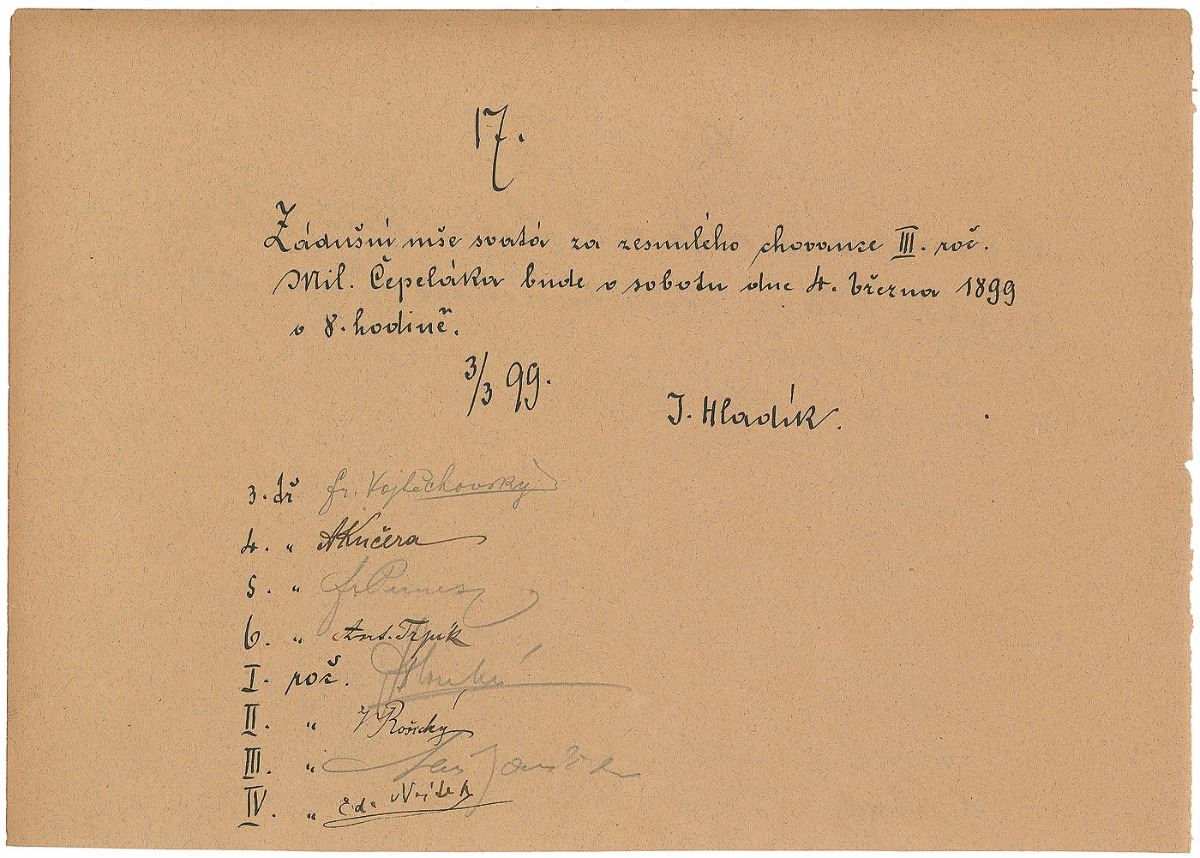 17.
Zádušní mše svatá za zesnulého chovance III. roč.
Mil. Čepeláka bude v sobotu dne 4. března 1899
v 8. hodině.
3/3 99.
J. Hladík.
3. tř Fr. Vojtěchovský
4. " AKučera
5. "
6. " Ant. Trpík
I. roč.
II. " Rosický
III. "
IV. " Ed.